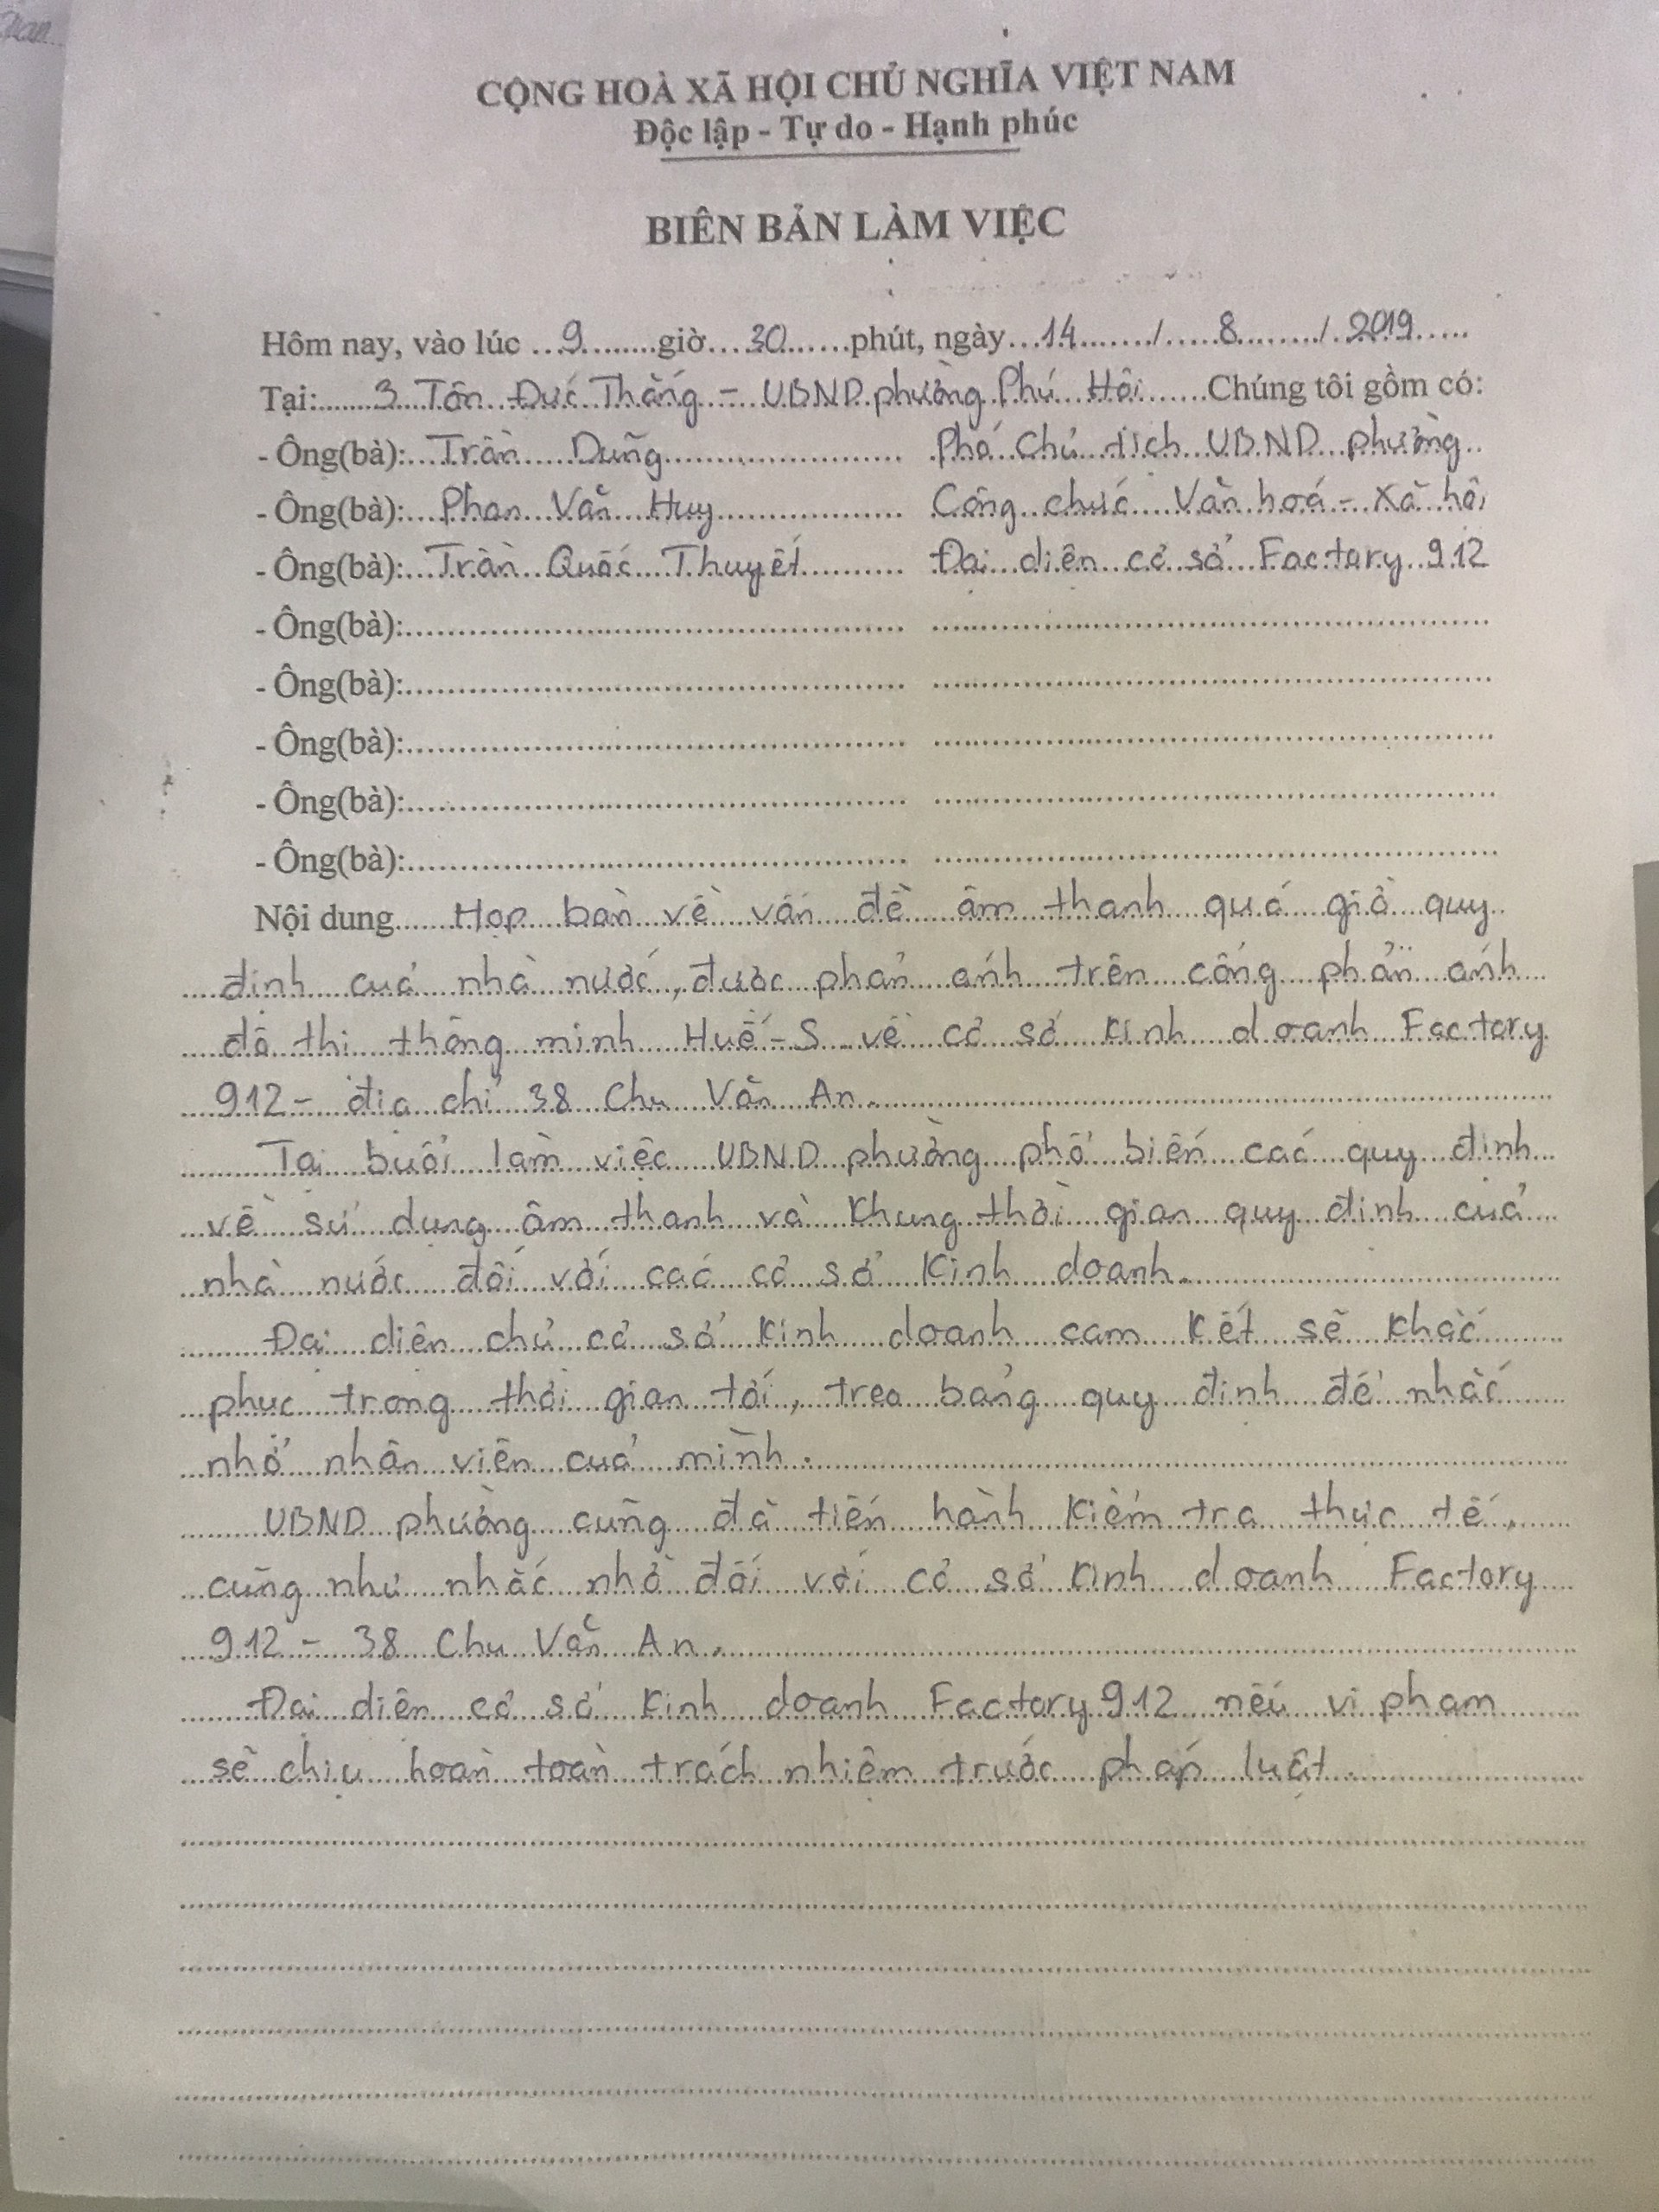 CỘNG HOÀ XÃ HỘI CHỦ NGHĨA VIỆT NAM
Độc lập - Tự do - Hạnh phúc
BIÊN BẢN LÀM VIỆC
Hôm nay, vào lúc ...9........giờ...30......phút, ngày...14......./.....8......../.2019.....
Tại:......3...Tôn Đức Thắng - UBND phường Phú Hội......Chúng tôi gồm có:
- Ông(bà):...Trần Dũng........................ Phó Chủ tịch UBND phường..
- Ông(bà):...Phan Văn Huy................... Công chức Văn hoá - Xã hội
- Ông(bà):...Trần Quốc Thuyết.......... Đại diện cơ sở Factory 912
- Ông(bà):...............................................................
- Ông(bà):...............................................................
- Ông(bà):...............................................................
- Ông(bà):...............................................................
- Ông(bà):...............................................................
Nội dung......Họp bàn về vấn đề âm thanh quá giờ quy
định của nhà nước, được phản ánh trên cổng phản ánh
đô thị thông minh Huế-S về cơ sở kinh doanh Factory
912 - địa chỉ 38 Chu Văn An.
Tại buổi làm việc UBND phường phổ biến các quy định
về sử dụng âm thanh và khung thời gian quy định của
nhà nước đối với các cơ sở kinh doanh.
Đại diện chủ cơ sở kinh doanh cam kết sẽ khắc
phục trong thời gian tới, treo bảng quy định để nhắc
nhở nhân viên của mình.
UBND phường cũng đã tiến hành kiểm tra thực tế,
cũng như nhắc nhở đối với cơ sở kinh doanh Factory
912 - 38 Chu Văn An.
Đại diện cơ sở kinh doanh Factory 912 nếu vi phạm
sẽ chịu hoàn toàn trách nhiệm trước pháp luật.